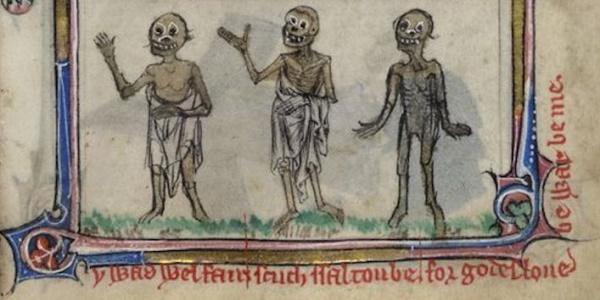 y was wel fair scuch ssaltou be for godes loue
be war be me.